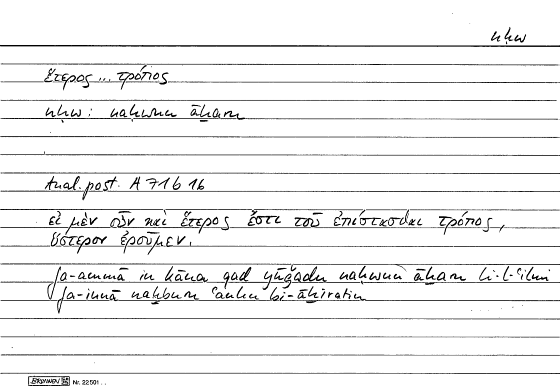 nḥw
ἕτερος ... τρόπος
nḥw : naḥwun āḫaru
Anal. post. A 71 b 16
εἰ μὲν οὖν καὶ ἕτερος ἔστι τοῦ ἐπίστασθαι τρόπος,
ὕστερον ἐροῦμεν.
fa-ammā in kāna qad yūǧadu naḥwun āḫaru li-l-ʿilmi
fa-innā naḫburu ʿanhu bi-āḫiratin
BRUNNEN Nr. 22501